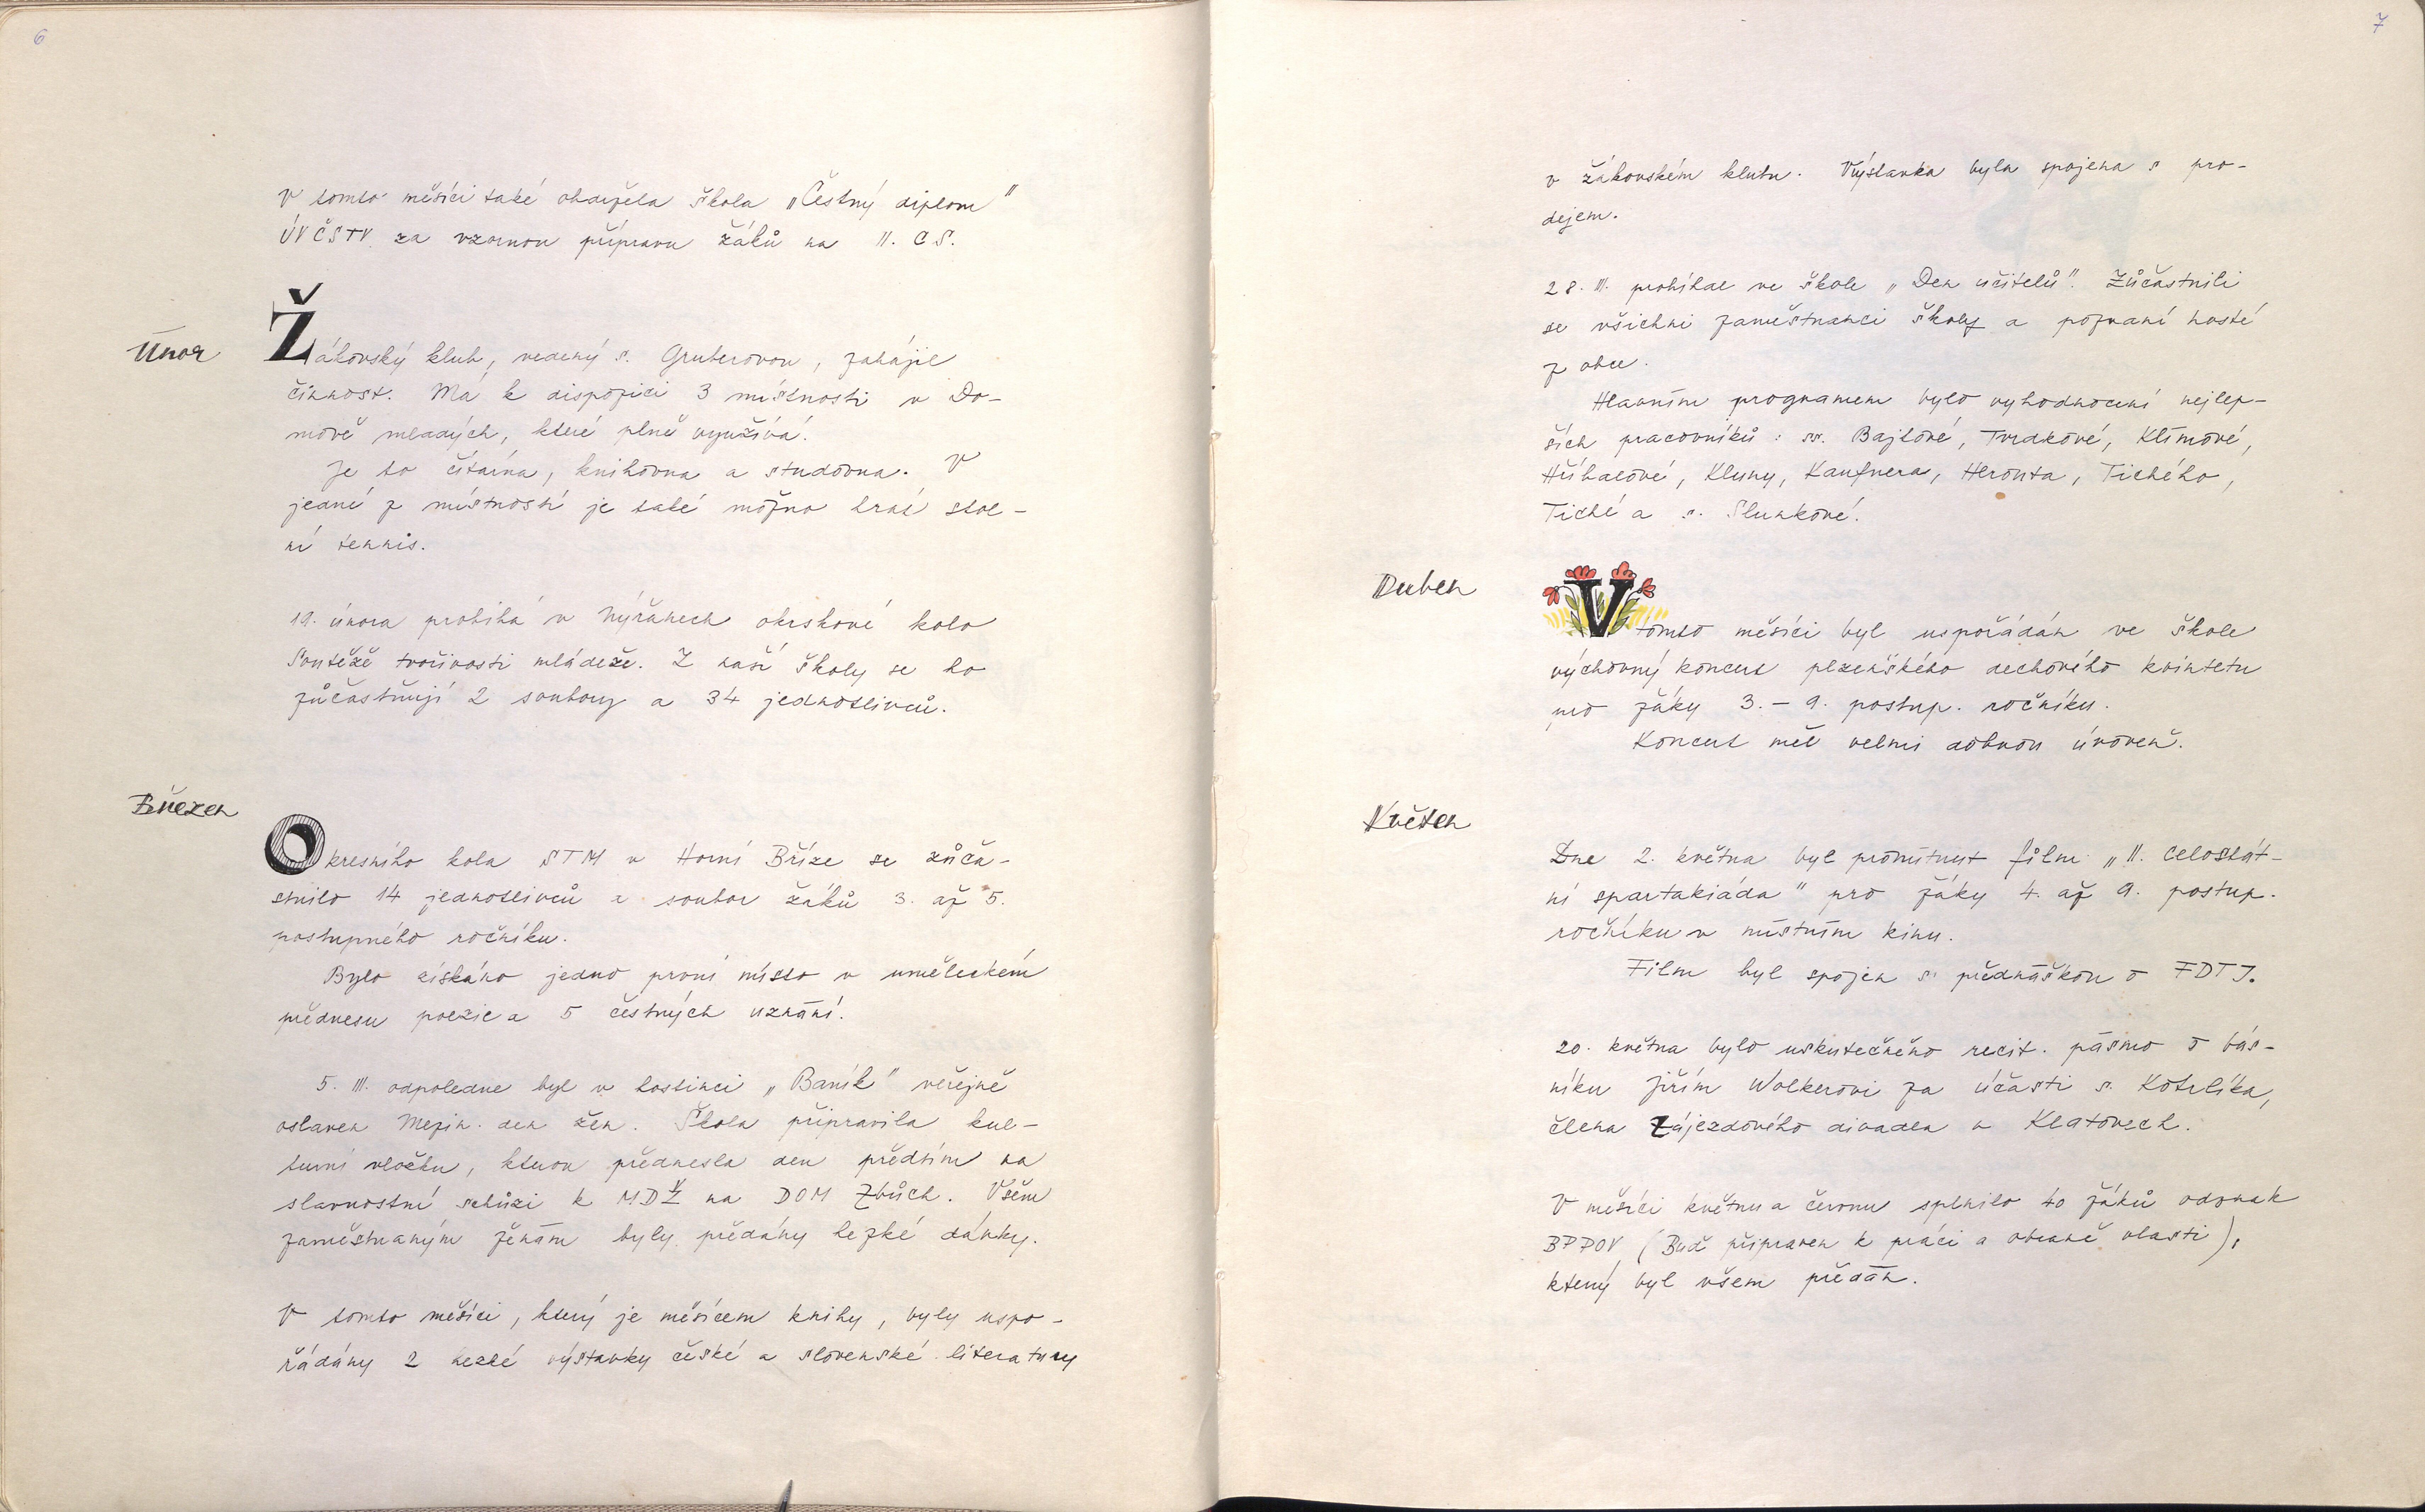 6
V tomto měsíci také obdržela škola „Čestný diplom"
ÚV ČSTV za vzornou přípravu žáků na II. C.S.
Únor
Žákovský klub, vedený s. Gruberovou, zahájil
činnost. Má k dispozici 3 místnosti v Do-
mově mladých, které plně využívá.
Je to čítárna, knihovna a studovna. V
jedné z místností je také možno hrát stol-
ní tennis.
19. února probíhá v Nýřanech okrskové kolo
Soutěže tvořivosti mládeže. Z naší školy se ho
zůčastňují 2 soubory a 34 jednotlivců.
Březen
Okresního kola STM v Horní Bříze se zůča-
stnilo 14 jednotlivců a soubor žáků 3. až 5.
postupného ročníku.
Bylo získáno jedno první místo v uměleckém
přednesu poezie a 5 čestných uznání.
5. III. odpoledne byl v hostinci „Baník" veřejně
oslaven Mezin. den žen. Škola připravila kul-
turní vložku, kterou přednesla den předtím na
slavnostní schůzi k MDŽ na DOM Zbůch. Všem
zaměstnaným ženám byly předány hezké dárky.
V tomto měsíci, který je měsícem knihy, byly uspo-
řádány 2 hezké výstavky české a slovenské literatury
7
v žákovském klubu. Výstavka byla spojena s pro-
dejem.
28. III. probíhal ve škole „Den učitelů". Zůčastnili
se všichni zaměstnanci školy a pozvaní hosté
z obce.
Hlavním programem bylo vyhodnocení nejlep-
ších pracovníků: ss. Bajtlové, Tvrdkové, Klímové,
Hříbalové, Kluny, Kaufnera, Heronta, Tichého,
Tiché a s. Slunkové.
Duben
V tomto měsíci byl uspořádán ve škole
výchovný koncert plzeňského dechového kvintetu
pro žáky 3. – 9. postup. ročníku.
Koncert měl velmi dobrou úroveň.
Květen
Dne 2. května byl promítnut film „II. celostát-
ní spartakiáda" pro žáky 4. až 9. postup.
ročníku v místním kinu.
Film byl spojen s přednáškou o FDTJ.
20. května bylo uskutečněno recit. pásmo o bás-
níku Jiřím Wolkerovi za účasti s. Kotrlíka,
člena Zájezdového divadla v Klatovech.
V měsíci květnu a červnu splnilo 40 žáků odznak
BPPOV (Buď připraven k práci a obraně vlasti),
který byl všem předán.